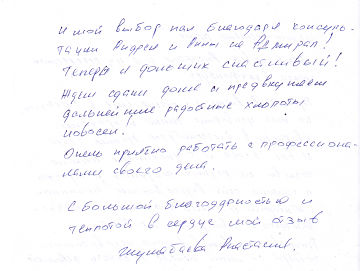 И мой выбор пал благодаря консуль-
тации Андрея и Анны на Адмирал!
Теперь я дольщик счастливый!
Ждем сдачи дома и предвкушаем
дальнейшие радостные хлопоты
новосел.
Очень приятно работать с профессиона-
лами своего дела.
С большой благодарностью и
теплотой в сердце мой отзыв
Анастасия.